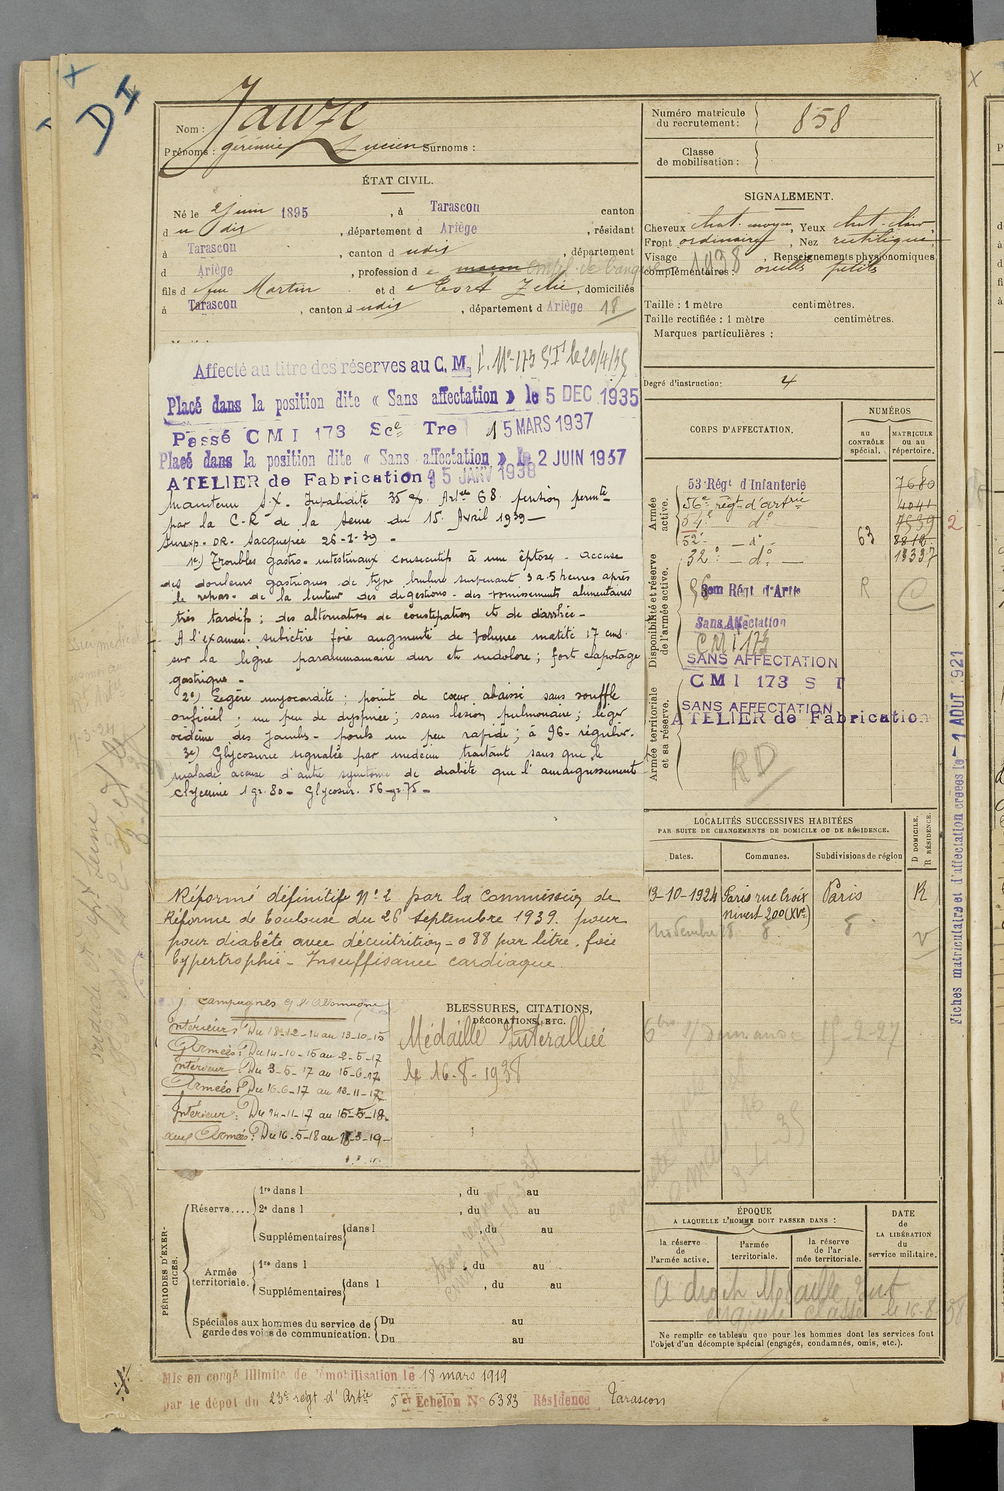 D I
Nom : Jauze
Prénoms : Lucien Surnoms :
Numéro matricule du recrutement : 858
Classe de mobilisation :
ÉTAT CIVIL.
Né le 2 juin 1895, à Tarascon canton
d udit, département d Ariège, résidant
à Tarascon, canton d udit, département
d Ariège, profession d
fils d e feu Martin et d e Zélie, domiciliés
à Tarascon, canton d udit, département d Ariège 18
SIGNALEMENT.
Cheveux chat. moyen, Yeux chat. clair
Front ordinaire, Nez rectiligne
Visage, Renseignements physionomiques
complémentaires : 1938 oreilles petites
Taille : 1 mètre centimètres.
Taille rectifiée : 1 mètre centimètres.
Marques particulières :
Degré d'instruction : 4
Affecté au titre des réserves au C. M. I. No 173 S I le 20/4/35
Placé dans la position dite « Sans affectation » le 5 DEC. 1935
Passé C M I 173 Sce Tre 15 MARS 1937
Placé dans la position dite « Sans affectation » le 2 JUIN 1937
ATELIER de Fabrication 5 JANV 1938
Maintenu S.X. Invalidité 35 % Artle 68. pension permte
par la C-R de la Seine du 15 Avril 1939 —
Surexp. DR. Sacquepée 26-1-39 -
1o) Troubles gastro-intestinaux consécutifs à une éptose. accuse
des douleurs gastriques de type brulure survenant 3 à 5 heures après
le repas - de la lenteur des digestions - des vomissements alimentaires
très tardifs ; des alternatives de constipation et de diarrhée -
A l'examen. subictère foie augmenté de volume matité 17 cms.
sur la ligne paramamaire dur et indolore ; fort clapotage
gastrique -
2o) Légère myocardite : point de cœur abaissé sans souffle
orificiel ; un peu de dyspnée ; sans lésion pulmonaire ; léger
œdème des jambes - pouls un peu rapide ; à 96 - régulier.
3o) Glycosurie signalée par médecin traitant sans que le
malade accuse d'autre symtome de diabète que l'amaigrissement
Glycémie 1 gr. 80 - Glycosur. 56 gr 75 -
Réformé définitif No 2 par la Commission de
Réforme de Toulouse du 26 septembre 1939. pour
pour diabète avec dénutrition - 0 88 par litre, foie
hypertrophié - Insuffisance cardiaque.
CORPS D'AFFECTATION.
NUMÉROS
AU CONTRÔLE spécial.
MATRICULE OU AU répertoire.
Armée active.
53 Régt d'Infanterie 7680
56e régt d'artrie 4041
54e do 7939
52e — do — 63 8812
32e — do — 13337
Disponibilité et réserve de l'armée active.
Régt d'Artie R C
Sans Affectation
CMI 173
SANS AFFECTATION
C M I 173 S I
Armée territoriale et sa réserve.
SANS AFFECTATION
ATELIER de Fabrication
RD
2
Fiches matriculaire et d'affectation créées le - 1 AOUT 1921
LOCALITÉS SUCCESSIVES HABITÉES
PAR SUITE DE CHANGEMENTS DE DOMICILE OU DE RÉSIDENCE.
Dates. Communes. Subdivisions de région D DOMICILE. R RÉSIDENCE.
13-10-1924 Paris rue Croix Paris R
nivert 200 (XVe)
Campagnes c/ l'Allemagne
Intérieur : Du 18-12-14 au 13-10-15
Armées : Du 14-10-15 au 2-5-17
Intérieur : Du 3-5-17 au 15-6-17
Armées : Du 16-6-17 au 13-11-17
Intérieur : Du 14-11-17 au 15-5-18
aux Armées : Du 16-5-18 au 18-3-19
BLESSURES, CITATIONS,
DÉCORATIONS, ETC.
Médaille Interalliée
le 16-8-1938
15-2-27
PÉRIODES D'EXERCICES.
Réserve....
1re dans l , du au
2e dans l , du au
Supplémentaires dans l , du au
Armée territoriale.
1re dans l , du au
Supplémentaires dans l , du au
Spéciales aux hommes du service de garde des voies de communication.
Du au
Du au
ÉPOQUE
A LAQUELLE L'HOMME DOIT PASSER DANS :
la réserve de l'armée active.
l'armée territoriale.
la réserve de l'armée territoriale.
DATE de LA LIBÉRATION du service militaire.
A droit Médaille
le 16-8-38
Ne remplir ce tableau que pour les hommes dont les services font
l'objet d'un décompte spécial (engagés, condamnés, omis, etc.).
Mis en congé illimité de démobilisation le 18 mars 1919
par le dépôt du 23e régt d'Artie 5e Echelon No 6383 Résidence Tarascon